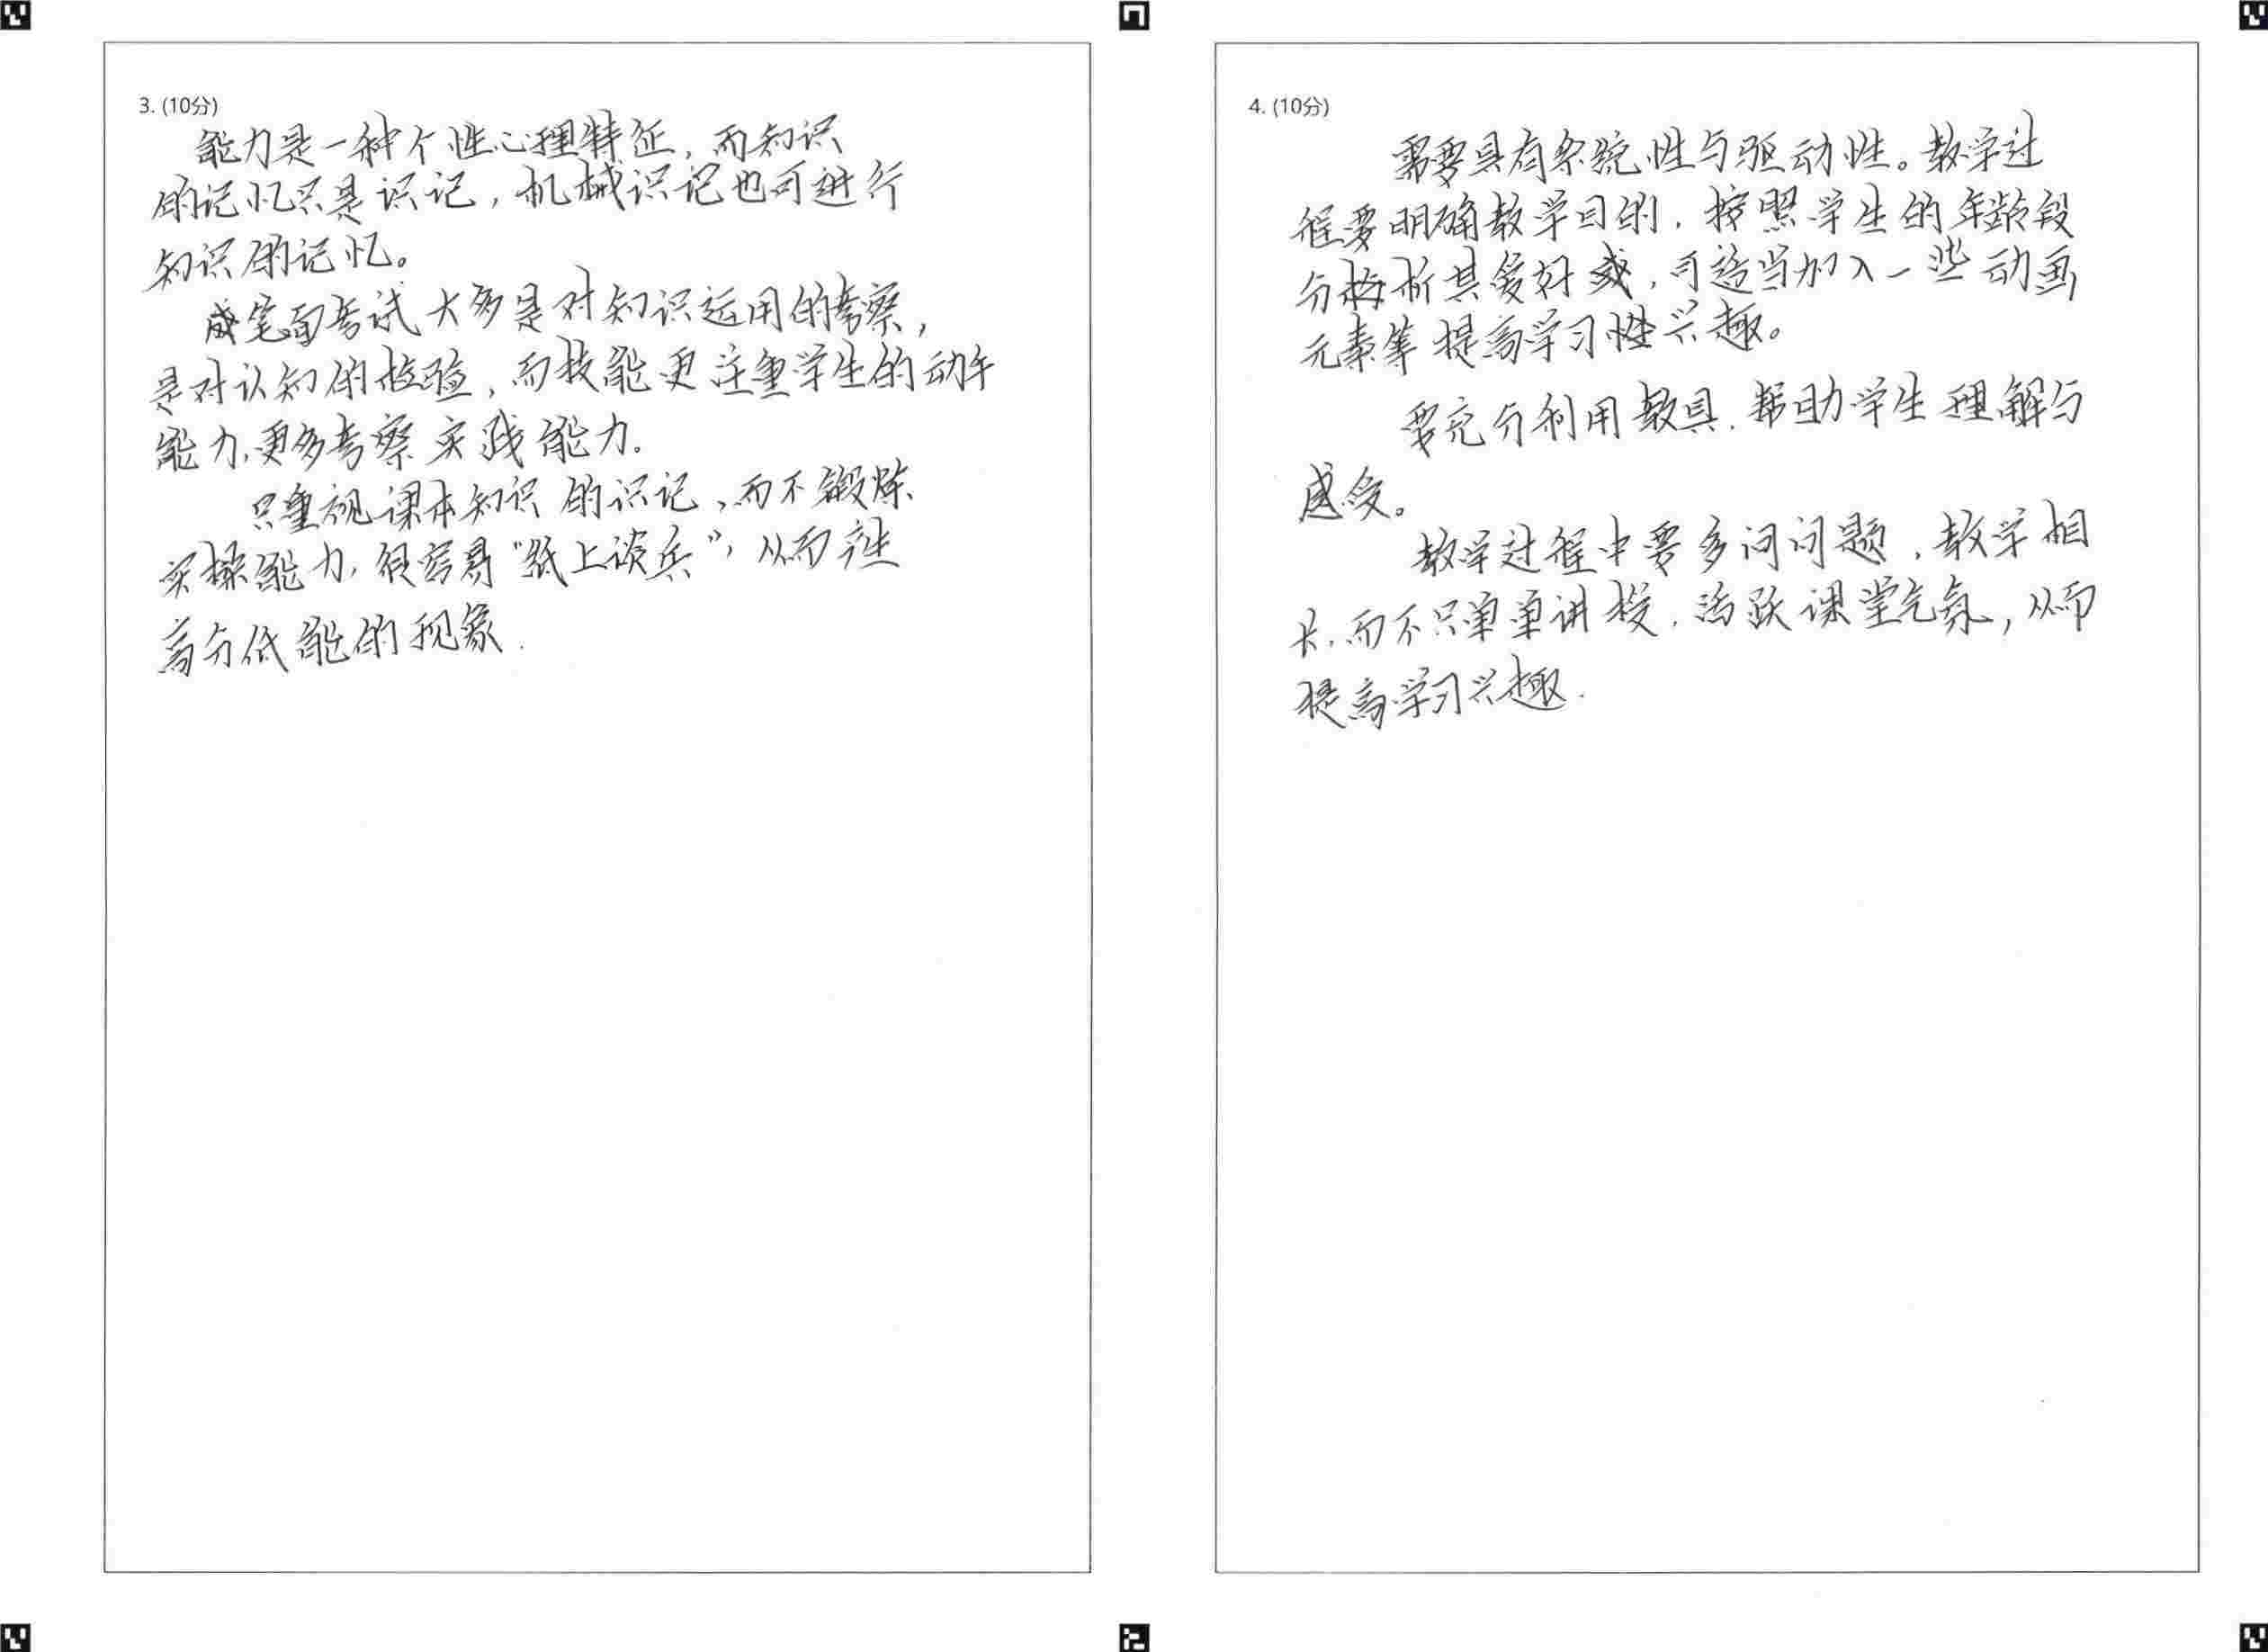 3. (10分)
能力是一种个性心理特征，而知识
的记忆只是识记，机械识记也可进行
知识的记忆。
笔面考试大多是对知识运用的考察，
是对认知的检验，而技能更注重学生的动手
能力，更多考察实践能力.
只重视课本知识的识记，而不锻炼
实操能力，很容易“纸上谈兵”，从而产生
高分低能的现象.
4. (10分)
需要具有系统性与驱动性。教学过
程要明确教学目的，按照学生的年龄段
分析其爱好，可适当加入一些动画
元素等提高学习兴趣。
要充分利用教具，帮助学生理解与
感受。
教学过程中要多问问题，教学相
长，而不只单单讲授，活跃课堂气氛，从而
提高学习兴趣.